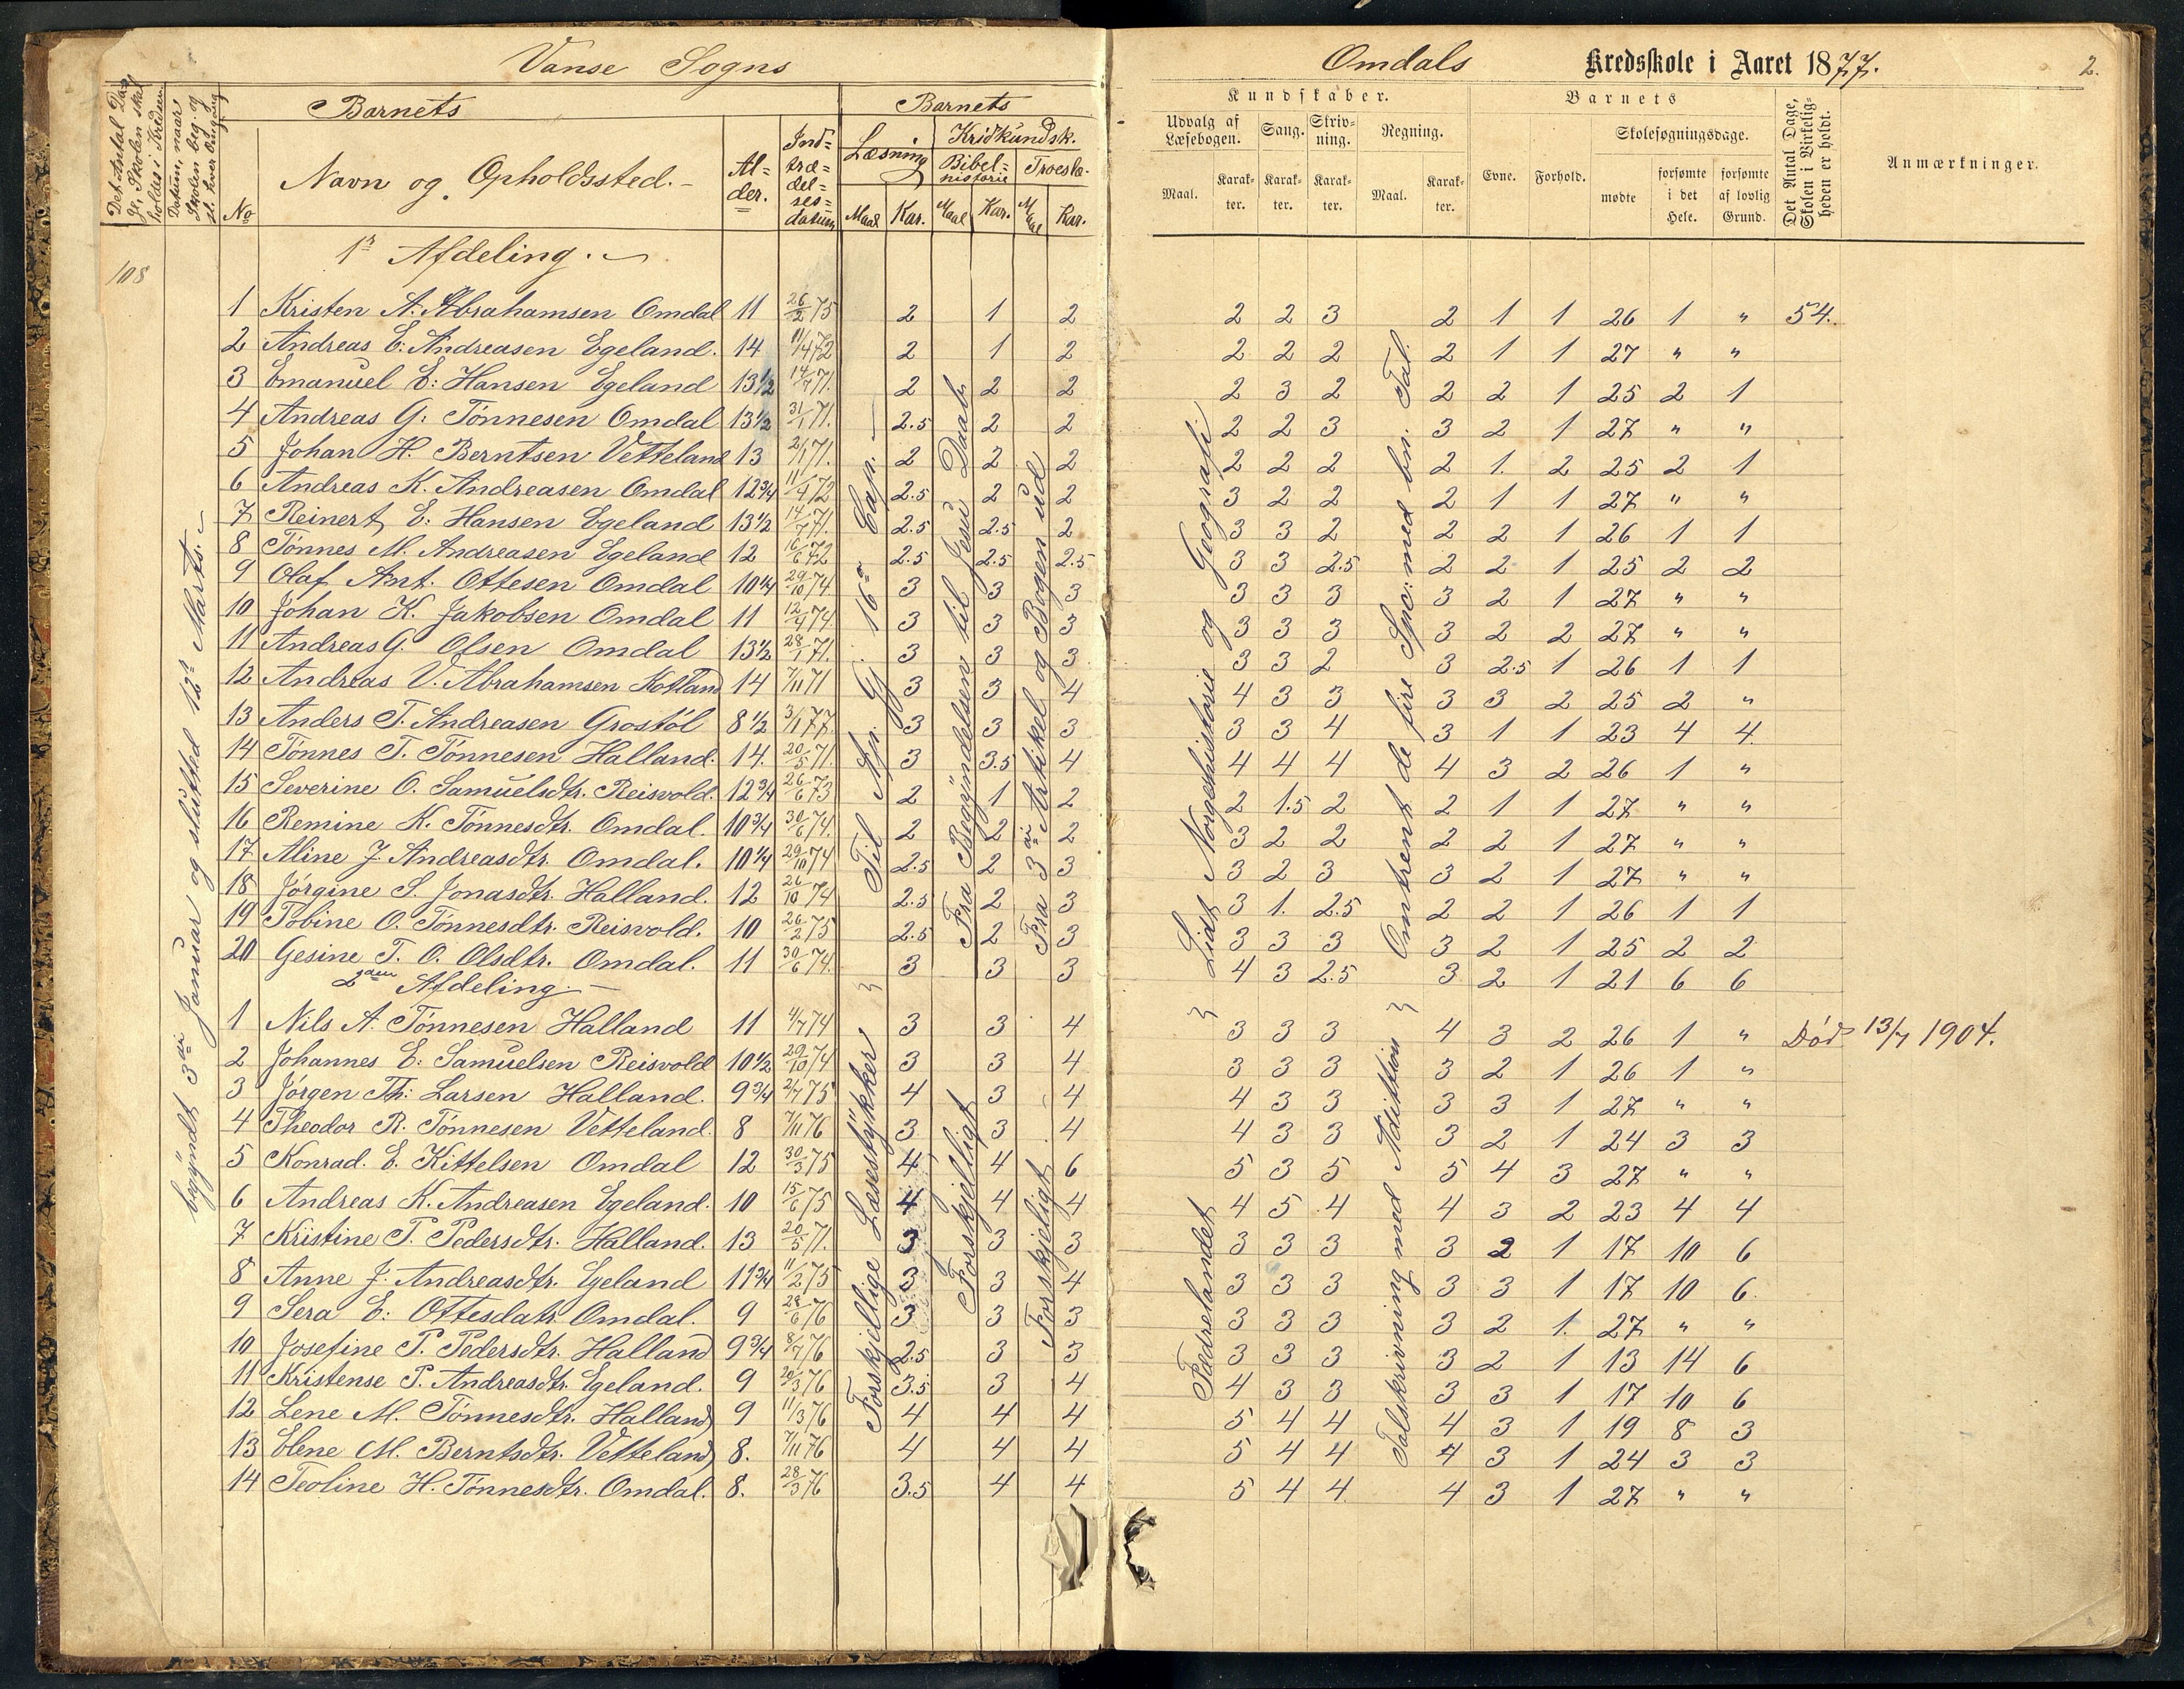 Vanse Sogns
Omdals Kredsskole i Aaret 1877.
2.
Det Antal Dage, Skolen skal holdes i Kredsen
Datum, naar Skolen beg. og sl. hver Omgang
Barnets
No
Navn og Opholdssted.
Al-der.
Ind-træ-del-ses-datum
Barnets
Læsning
Maal Kar.
Kridkundsk.
Bibel-historie
Maal Kar.
Troesla.
Maal Kar.
Kundskaber.
Udvalg af Læsebogen.
Maal. Karak-ter.
Sang.
Karak-ter.
Skriv-ning.
Karak-ter.
Regning.
Maal. Karak-ter.
Barnets
Evne. Forhold.
Skolesøgningsdage.
mødte
forsømte i det Hele.
forsømte af lovlig Grund.
Det Antal Dage, Skolen i Virkelig-heden er holdt.
Anmærkninger.
108
begyndt 3die Januar og slutted 12te Marts.
1ste Afdeling.
1 Kristen A. Abrahamsen Omdal 11 26/2 75 2 1 2 2 2 3 2 1 1 26 1 " 54.
2 Andreas E. Andreasen Egeland. 14 11/4 72 2 1 2 2 2 2 2 1 1 27 " "
3 Emanuel E. Hansen Egeland 13 1/2 14/7 71. 2 2 2 2 3 2 2 2 1 25 2 1
4 Andreas G. Tönnesen Omdal 13 1/2 31/1 71. 2.5 2 2 2 2 3 3 2 1 27 " "
5 Johan H. Berntsen Vetteland 13 2/1 71. 2 2 2 2 2 2 2 1. 2 25 2 1
6 Andreas K. Andreasen Omdal 12 3/4 11/4 72 2.5 2 2 3 2 2 2 1 1 27 " "
7 Reinert E. Hansen Egeland 13 1/2 14/7 71. 2.5 2.5 2 3 3 2 2 2 1 26 1 1
8 Tönnes M. Andreasen Egeland 12 16/6 72 2.5 2.5 2.5 3 3 2.5 2 2 1 25 2 2
9 Olaf Ant. Ottesen Omdal 10 1/4 29/10 74. 3 3 3 3 3 3 3 2 1 27 " "
10 Johan K. Jakobsen Omdal 11 12/4 74. 3 3 3 3 3 3 3 2 2 27 " "
11 Andreas G. Olsen Omdal 13 1/2 28/1 71. 3 3 3 3 3 2 3 2.5 1 26 1 1
12 Andreas V. Abrahamsen Kotland 14 7/11 71 3 3 4 4 3 3 3 3 2 25 2 "
13 Anders T. Andreasen Grostöl 8 1/2 3/1 77. 3 3 3 3 3 4 3 1 1 23 4 4.
14 Tönnes T. Tönnesen Halland. 14. 20/5 71. 3 3.5 4 4 4 4 4 3 2 26 1 "
15 Severine O. Samuelsdtr. Reisvold. 12 3/4 26/6 73 2 1 2 2 1.5 2 2 1 1 27 " "
16 Remine K. Tönnesdtr. Omdal. 10 3/4 30/6 74. 2 2 2 3 2 2 2 2 1 27 " "
17 Aline J. Andreasdtr. Omdal. 10 1/4 29/10 74 2.5 2 3 3 2 3 3 2 1 27 " "
18 Jörgine S. Jonasdtr. Halland. 12 26/10 74 2.5 2 3 3 1. 2.5 2 2 1 26 1 1
19 Tobine O. Tönnesdtr. Reisvold. 10 26/2 75 2.5 2 3 3 3 3 3 2 1 25 2 2
20 Gesine T. O. Olsdtr. Omdal. 11 30/6 74. 3 3 3 4 3 2.5 3 2 1 21 6 6
Til Ap. Gj. 16de Cap.
Fra Begyndelsen til Jesu Daab
Fra 3die Artikel og Bogen ud
Lidt Norgeshistorie og Geografi
Omtrent de fire Spec: med bn. Tal.
2den Afdeling.
1 Nils A. Tönnesen Halland 11 4/7 74 3 3 4 3 3 3 4 3 2 26 1 " Död 13/7 1904.
2 Johannes E. Samuelsen Reisvold 10 1/2 29/10 74 3 3 4 3 3 3 3 2 1 26 1 "
3 Jörgen Th: Larsen Halland. 9 3/4 2/7 75 4 3 4 4 3 3 3 3 1 27 " "
4 Theodor R. Tönnesen Vetteland. 8 7/11 76 3 3 4 4 3 3 3 2 1 24 3 3
5 Konrad. E. Kittelsen Omdal 12 30/3 75 4 4 6 5 3 5 5 4 3 27 " "
6 Andreas K. Andreasen Egeland. 10 15/6 75 4 4 4 4 5 4 4 3 2 23 4 4
7 Kristine T. Pedersdtr. Halland. 13 20/5 71. 3 3 3 3 3 3 3 2 1 17 10 6
8 Anne J. Andreasdtr. Egeland 11 3/4 11/2 75 3 3 4 3 3 3 3 3 1 17 10 6.
9 Sera E. Ottesdatr. Omdal. 9 28/6 76 3 3 3 3 3 3 3 2 1. 27 " "
10 Josefine P. Pedersdtr. Halland 9 3/4 8/7 76 2.5 3 3 3 3 3 3 2 1 13 14 6
11 Kristense P. Andreasdtr. Egeland. 9 29/3 76 3.5 3 4 4 3 3 3 3 1 17 10 6
12 Lene M. Tönnesdtr. Halland 9 11/3 76 4 4 4 5 4 4 4 3 1 19 8 3
13 Elene M. Berntsdtr. Vetteland 8. 7/11 76 4 4 4 5 4 4 4 3 1 24 3 3
14 Teoline H. Tönnesdtr. Omdal. 8. 28/3 76 3.5 4 4 5 4 4 4 3 1 27 " "
Forskjellige Læsestykker
Forskjelligt
Forskjeligt
Fædrelandet
Talskrivning med Adittion